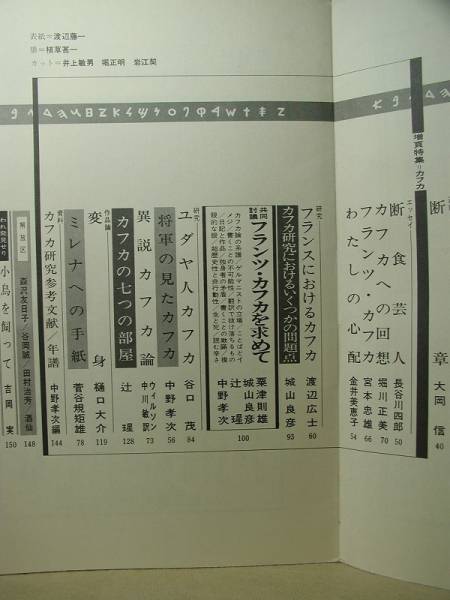 表紙＝渡辺藤一
扉＝植草甚一
カット＝井上敏男　堀正明　岩江契
断章 大岡信 40
増頁特集＝カフカ
エッセイ
断食芸人 長谷川四郎 50
カフカへの回想 堀川正美 70
フランツ・カフカ 宮本忠雄 66
わたしの心配 金井美恵子 54
研究
フランスにおけるカフカ 渡辺広士 60
カフカ研究におけるいくつかの問題点 城山良彦 93
共同討議
フランツ・カフカを求めて 粟津則雄 城山良彦 辻瑆 中野孝次 100
研究
ユダヤ人カフカ 谷口茂 84
将軍の見たカフカ 中野孝次 56
異説カフカ論 ウイルソン 中川敏訳 73
カフカの七つの部屋 辻瑆 128
作品論
変身 樋口大介 119
ミレナへの手紙 菅谷規矩雄 78
資料
カフカ研究参考文献／年譜 中野孝次編 144
解放区 森沢友日子／谷岡誠／田村治芳／酒仙 148
われ発見せり
小鳥を飼って 吉岡実 150